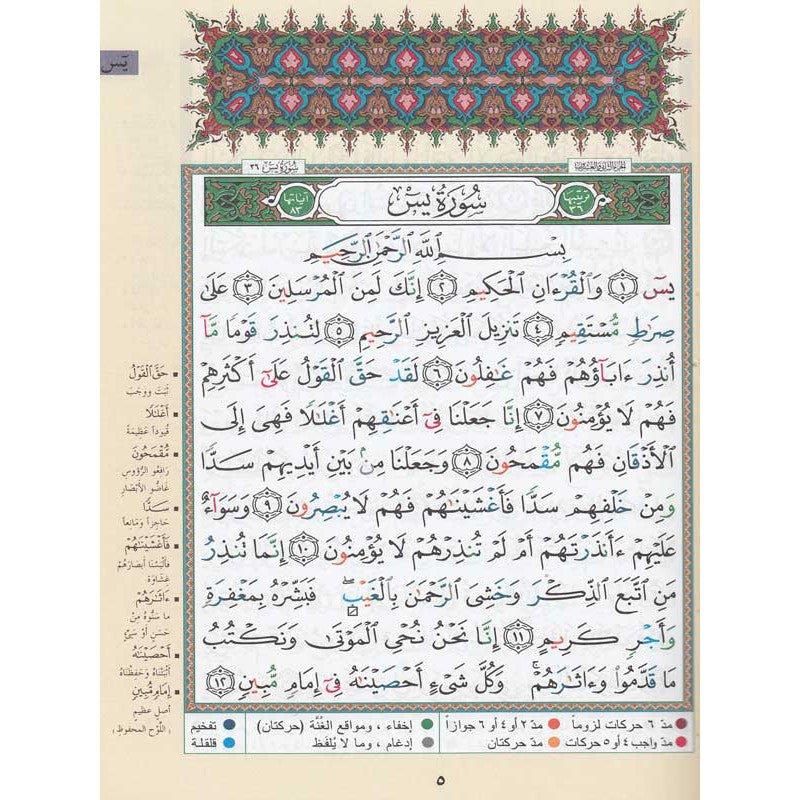 يسٓ
الجزء الثاني والعشرون
سُورَةُ يسٓ ٣٦
تَرتيبُها ٣٦
سُورَةُ يسٓ
آياتُها ٨٣
بِسْمِ ٱللَّهِ ٱلرَّحْمَٰنِ ٱلرَّحِيمِ
يسٓ ١ وَٱلْقُرْءَانِ ٱلْحَكِيمِ ٢ إِنَّكَ لَمِنَ ٱلْمُرْسَلِينَ ٣ عَلَىٰ
صِرَٰطٍ مُّسْتَقِيمٍ ٤ تَنزِيلَ ٱلْعَزِيزِ ٱلرَّحِيمِ ٥ لِتُنذِرَ قَوْمًا مَّآ
أُنذِرَ ءَابَآؤُهُمْ فَهُمْ غَٰفِلُونَ ٦ لَقَدْ حَقَّ ٱلْقَوْلُ عَلَىٰٓ أَكْثَرِهِمْ
فَهُمْ لَا يُؤْمِنُونَ ٧ إِنَّا جَعَلْنَا فِىٓ أَعْنَٰقِهِمْ أَغْلَٰلًا فَهِىَ إِلَى
ٱلْأَذْقَانِ فَهُم مُّقْمَحُونَ ٨ وَجَعَلْنَا مِنۢ بَيْنِ أَيْدِيهِمْ سَدًّا
وَمِنْ خَلْفِهِمْ سَدًّا فَأَغْشَيْنَٰهُمْ فَهُمْ لَا يُبْصِرُونَ ٩ وَسَوَآءٌ
عَلَيْهِمْ ءَأَنذَرْتَهُمْ أَمْ لَمْ تُنذِرْهُمْ لَا يُؤْمِنُونَ ١٠ إِنَّمَا تُنذِرُ
مَنِ ٱتَّبَعَ ٱلذِّكْرَ وَخَشِىَ ٱلرَّحْمَٰنَ بِٱلْغَيْبِ ۖ فَبَشِّرْهُ بِمَغْفِرَةٍ
وَأَجْرٍ كَرِيمٍ ١١ إِنَّا نَحْنُ نُحْىِ ٱلْمَوْتَىٰ وَنَكْتُبُ
مَا قَدَّمُوا۟ وَءَاثَٰرَهُمْ ۚ وَكُلَّ شَىْءٍ أَحْصَيْنَٰهُ فِىٓ إِمَامٍ مُّبِينٍ ١٢
▪ حَقَّ ٱلْقَوْلُ
ثَبَتَ ووَجَبَ
▪ أَغْلَٰلًا
قُيوداً عَظيمَةً
▪ مُقْمَحُونَ
رافِعُو الرُّؤوسِ
غاضُّو الأَبْصَارِ
▪ سَدًّا
حَاجِزاً ومَانِعاً
▪ فَأَغْشَيْنَٰهُمْ
فألبَسْنا أبصَارَهُمْ
غِشَاوَة
▪ ءَاثَٰرَهُمْ
ما سَنُّوهُ مِنْ
حَسَنٍ أوْ سَيِّئٍ
▪ أَحْصَيْنَٰهُ
أثْبَتْناهُ وحَفِظْناهُ
▪ إِمَامٍ مُّبِينٍ
أصلٍ عظيمٍ
(اللّوْحِ المحفوظِ)
مدّ ٦ حركات لزوماً ● مدّ ٢ أو ٤ أو ٦ جوازاً ● إخفاء ، ومواقع الغُنَّة (حركتان) ● تفخيم
مدّ واجب ٤ أو ٥ حركات ● مدّ حركتان ● إدغام ، وما لا يُلفَظ ● قلقلة
٥